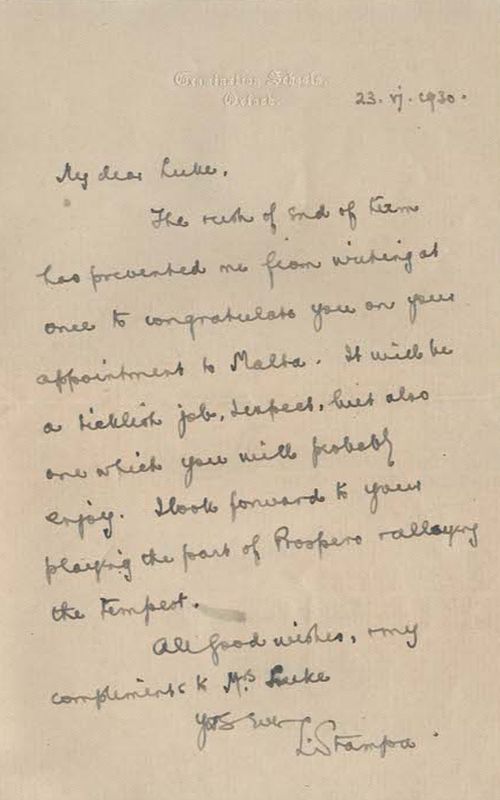 Examination Schools,
Oxford.
23. vj. 1930.
My dear Luke,
The rush of end of term
has prevented me from writing at
once to congratulate you on your
appointment to Malta. It will be
a ticklish job, I expect, but also
one which you will probably
enjoy. I look forward to your
playing the part of Prospero & allaying
the tempest.
All good wishes, & my
compliments to Mrs Luke
Yrs ever
L. Stampa.